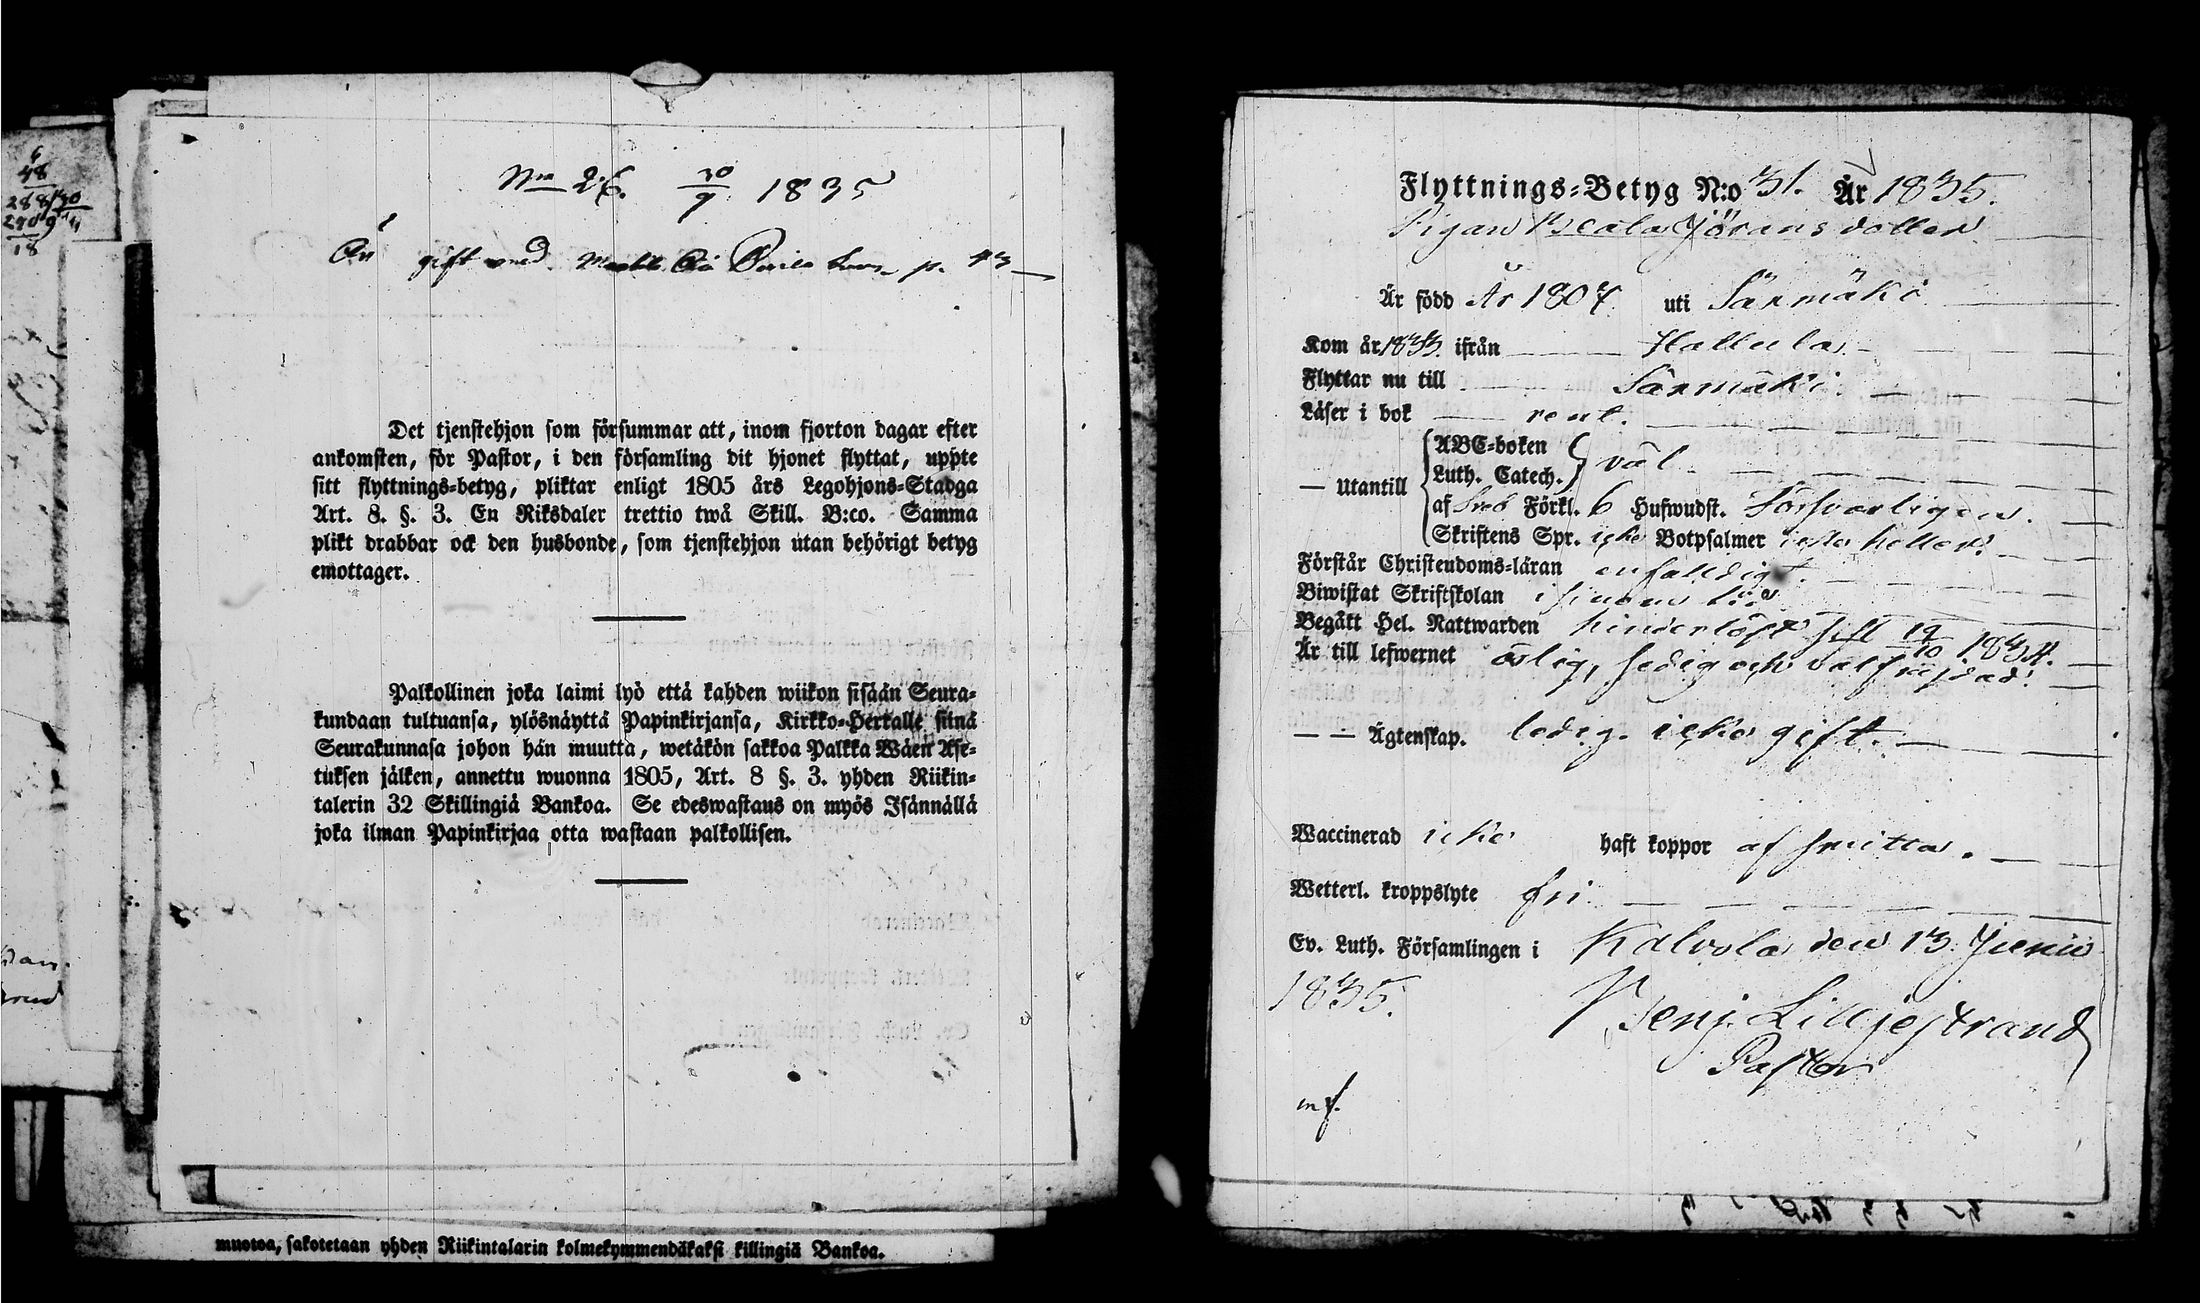 6
48
18
Nro 26. 20/9 1835
gift med
p. 43
Det tjenstehjon som försummar att, inom fjorton dagar efter
ankomsten, för Pastor, i den församling dit hjonet flyttat, uppte
sitt flyttnings=betyg, pliktar enligt 1805 års Legohjons=Stadga
Art. 8. §. 3. En Riksdaler trettio twå Skill. B:co. Samma
plikt drabbar ock den husbonde, som tjenstehjon utan behörigt betyg
emottager.
Palkollinen joka laimi lyö että kahden wiikon sisään Seura=
kundaan tultuansa, ylösnäyttä Papinkirjansa, Kirkko=Herralle siinä
Seurakunnasa johon hän muutta, wetäkön sakkoa Palkka Wäen Ase=
tuksen jälken, annettu wuonna 1805, Art. 8 §. 3. yhden Riikin=
talerin 32 Skillingiä Bankoa. Se edeswastaus on myös Isännällä
joka ilman Papinkirjaa otta wastaan palkollisen.
muotoa, sakotetaan yhden Riikintalarin kolmekymmendäkaksi killingiä Bankoa.
Flyttnings=Betyg N:o 31. År 1835.
Pigan Beata Jöransdotter
Är född År 1807 uti Särmäki
Kom år 1833. ifrån Hattula
Flyttar nu till Särmäki.
Läser i bok rent.
ABC=boken
Luth. Catech. väl
— Utantill
af Sveb Förkl. 6 Hufwudst. Försvarligen.
Skriftens Spr. icke Botpsalmer icke heller.
Förstår Christendoms=läran enfalldigt.
Biwistat Skriftskolan i sinom tid
Begått Hel. Nattwarden hinderlöst sist 19/10 1834.
Är till lefwernet ärlig, sedig och välfräjdad.
— — Ägtenskap. ledig. icke gift.
Waccinerad icke haft koppor af smitta.
Wetterl. kroppslyte fri
Ev. Luth. Församlingen i Kalvola den 13 Junii
1835.
Benj. Lilljestrand
Pastor